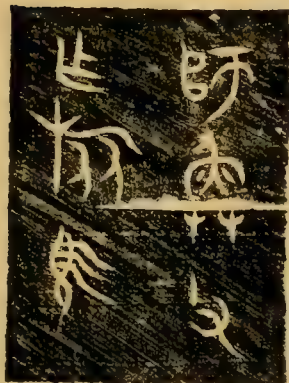 師奐父
乍旅須